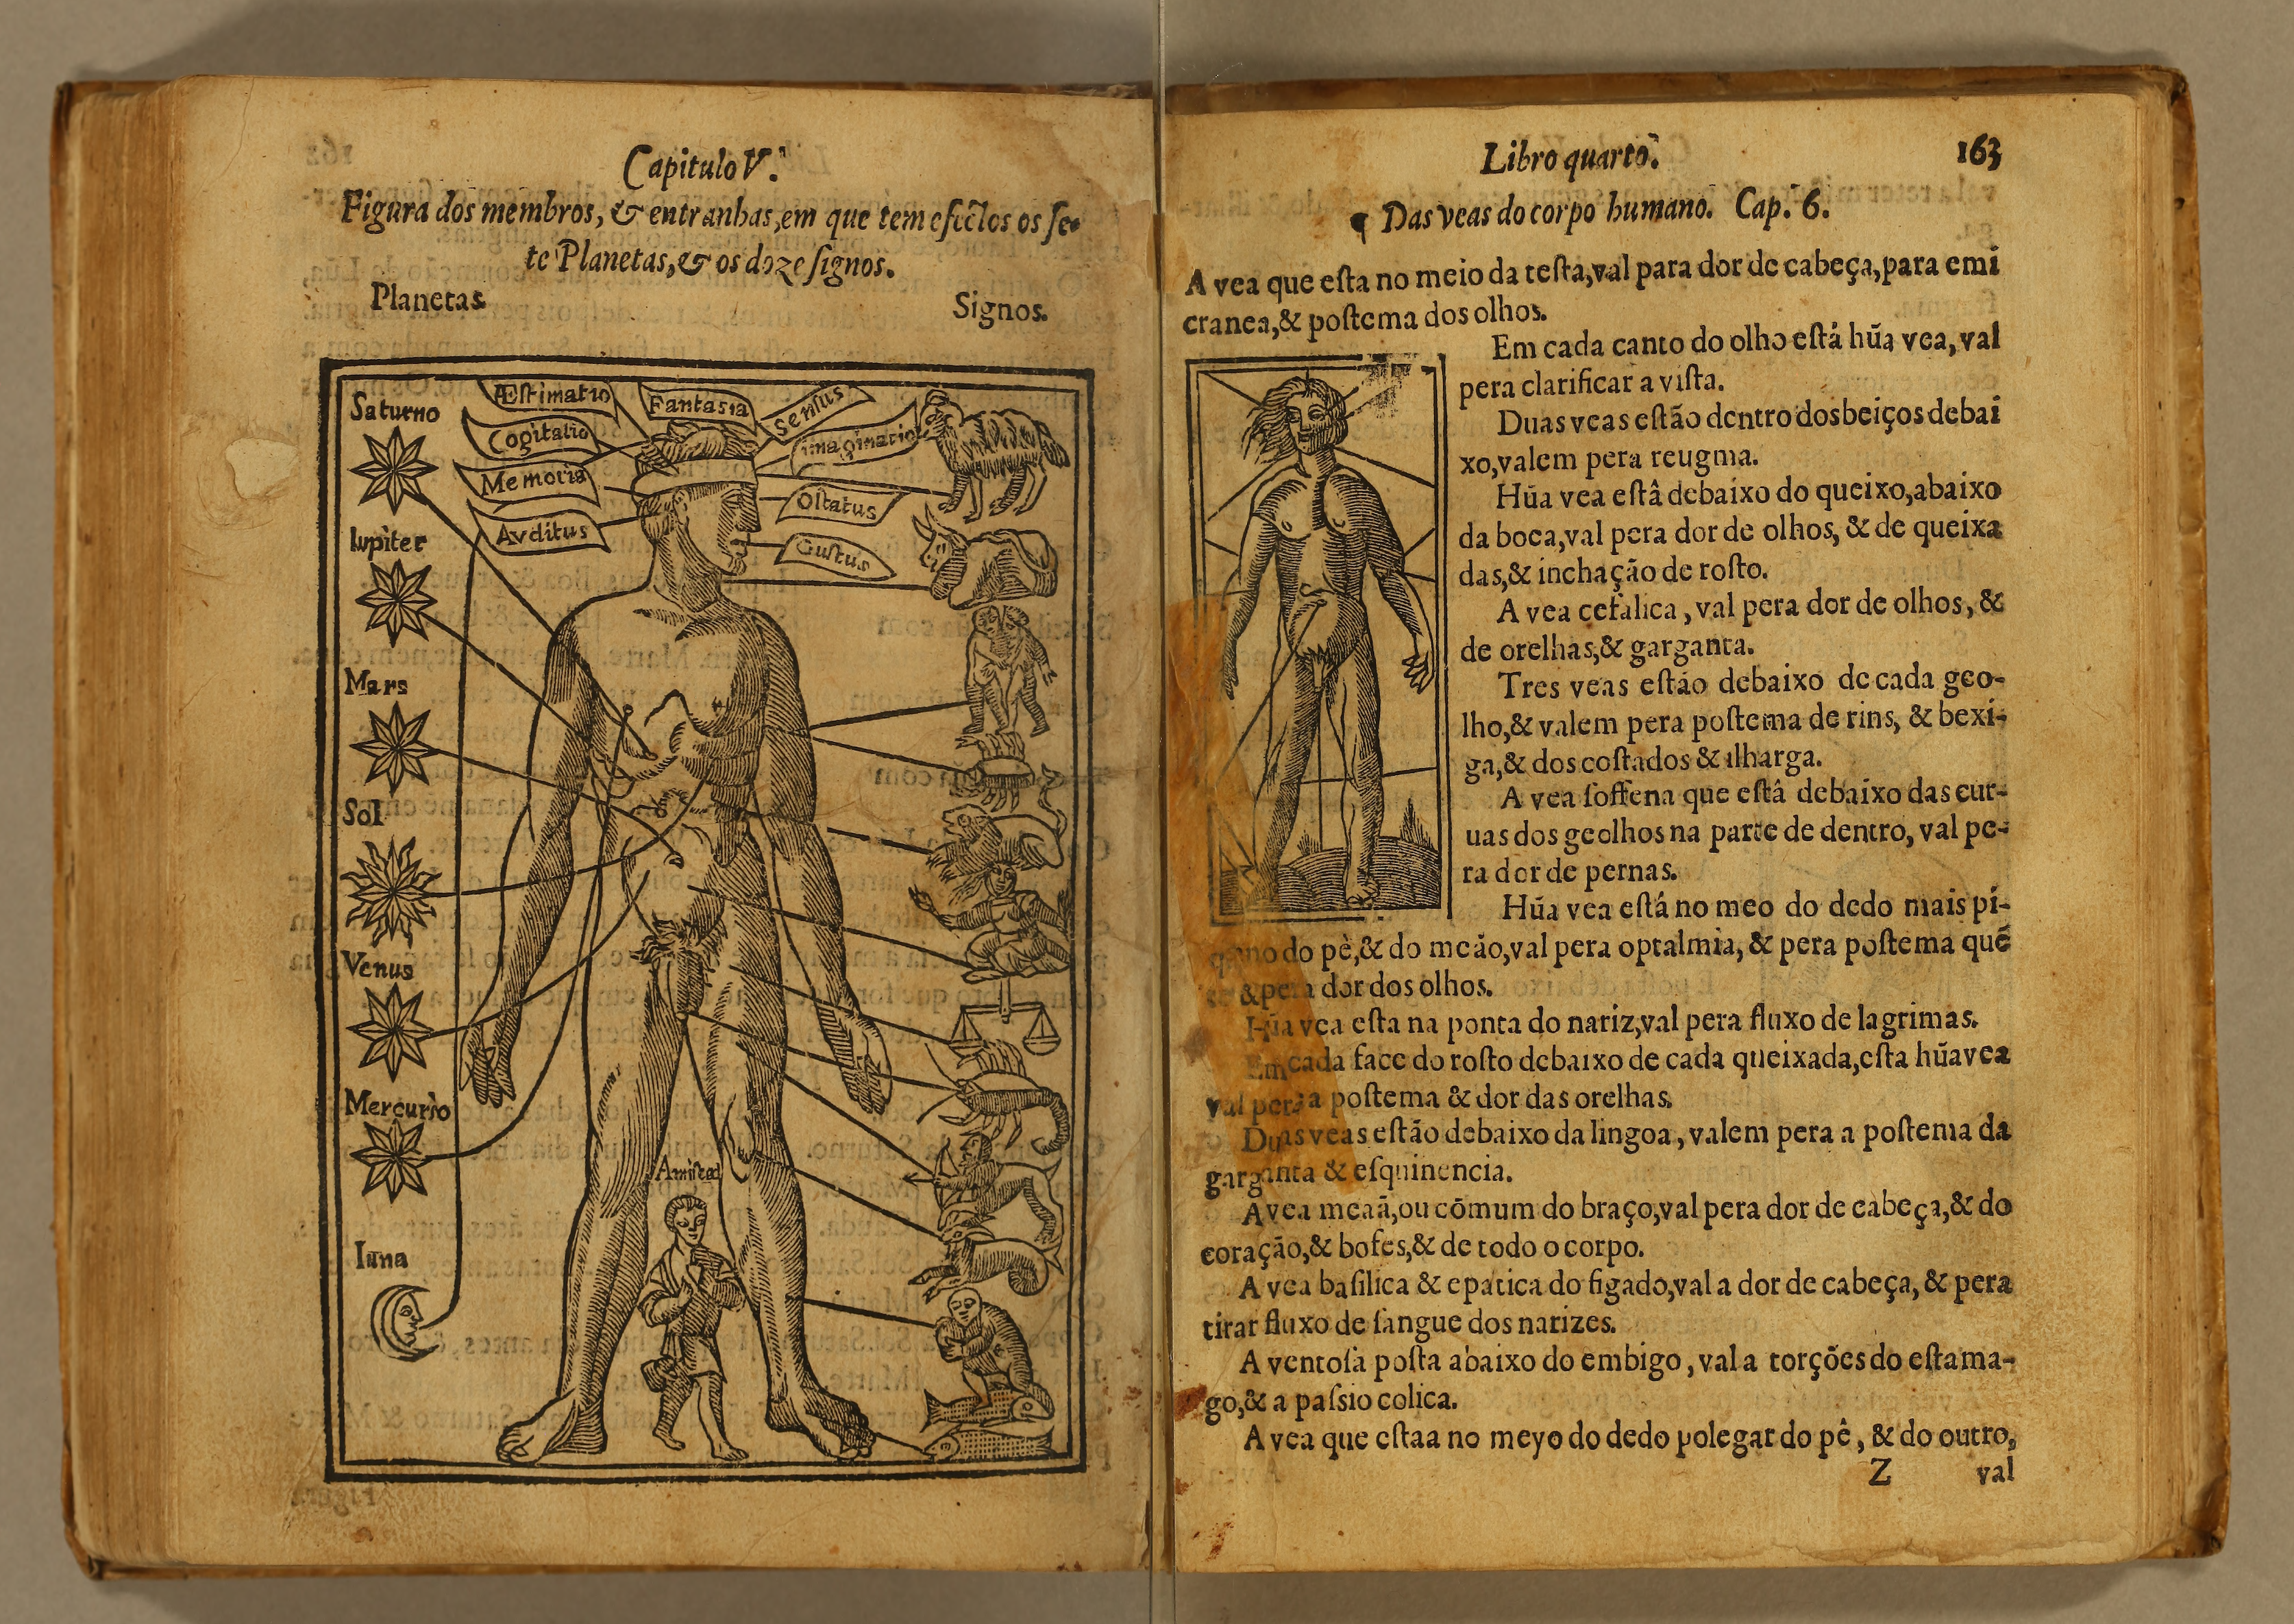 Capitulo V.
Figura dos membros, & entranhas, em que tem efectos os ſe-
te Planetas, & os doze ſignos.
Planetas
Signos.
Saturno
Iupiter
Mars
Sol
Venus
Mercurio
luna
Æſtimatio
Cogitatio
Memoria
Avditus
Fantasia
Sensus
imaginatio
Olfatus
Guſtus
Libro quarto.
163
¶ Das veas do corpo humano. Cap. 6.
A vea que eſta no meio da teſta, val para dor de cabeça, para emi
cranea, & poſtema dos olhos.
Em cada canto do olho eſtá hũa vea, val
pera clarificar a viſta.
Duas veas eſtão dentro dos beiços debai
xo, valem pera reugma.
Hũa vea eſtâ debaixo do queixo, abaixo
da boca, val pera dor de olhos, & de queixa
das, & inchação de roſto.
A vea cefalica, val pera dor de olhos, &
de orelhas, & garganta.
Tres veas eſtão debaixo de cada geo-
lho, & valem pera poſtema de rins, & bexi-
ga, & dos coſtados & ilharga.
A vea ſoffena que eſtâ debaixo das cur-
uas dos geolhos na parte de dentro, val pe-
ra dor de pernas.
Hũa vea eſtá no meo do dedo mais pi-
queno do pè, & do meão, val pera optalmia, & pera poſtema quẽ
te & pera dor dos olhos.
Hũa vea eſta na ponta do nariz, val pera fluxo de lagrimas.
Em cada face do roſto debaixo de cada queixada, eſta hũa vea
val pera a poſtema & dor das orelhas.
Duas veas eſtão debaixo da lingoa, valem pera a poſtema da
garganta & eſquinencia.
A vea meaã, ou cõmum do braço, val pera dor de cabeça, & do
coração, & bofes, & de todo o corpo.
A vea baſilica & epatica do figado, val a dor de cabeça, & pera
tirar fluxo de ſangue dos narizes.
A ventoſa poſta abaixo do embigo, val a torções do eſtama-
go, & a paſsio colica.
A vea que eſtaa no meyo do dedo polegar do pê, & do outro,
Z
val